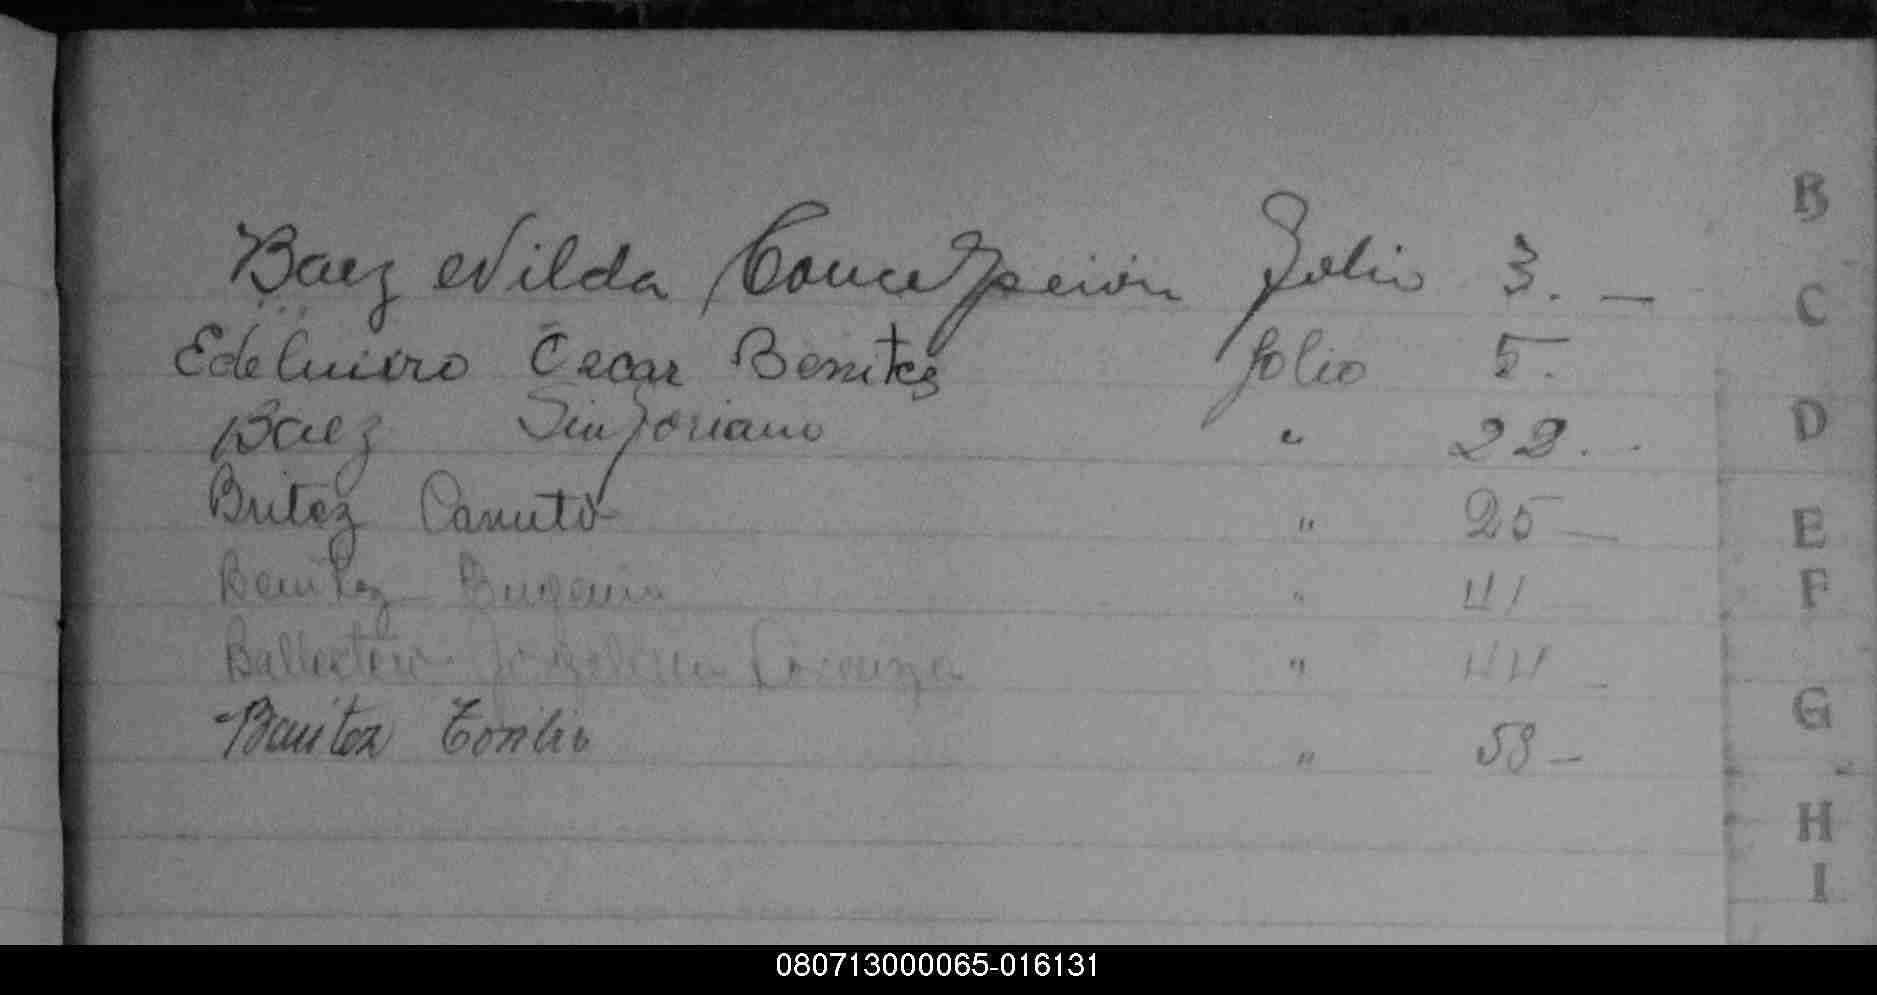 Baez Nilda Concepción folio 3. —
Edelmiro Cecar Benitez folio 5.
Baez Sinforiano " 22. -
Britez Canuto " 25 —
Benitez Eugenio " 41 —
Ballestero Lorenza " 44 —
Benitez Emilio " 58 —
B
C
D
E
F
G
H
I
080713000065-016131